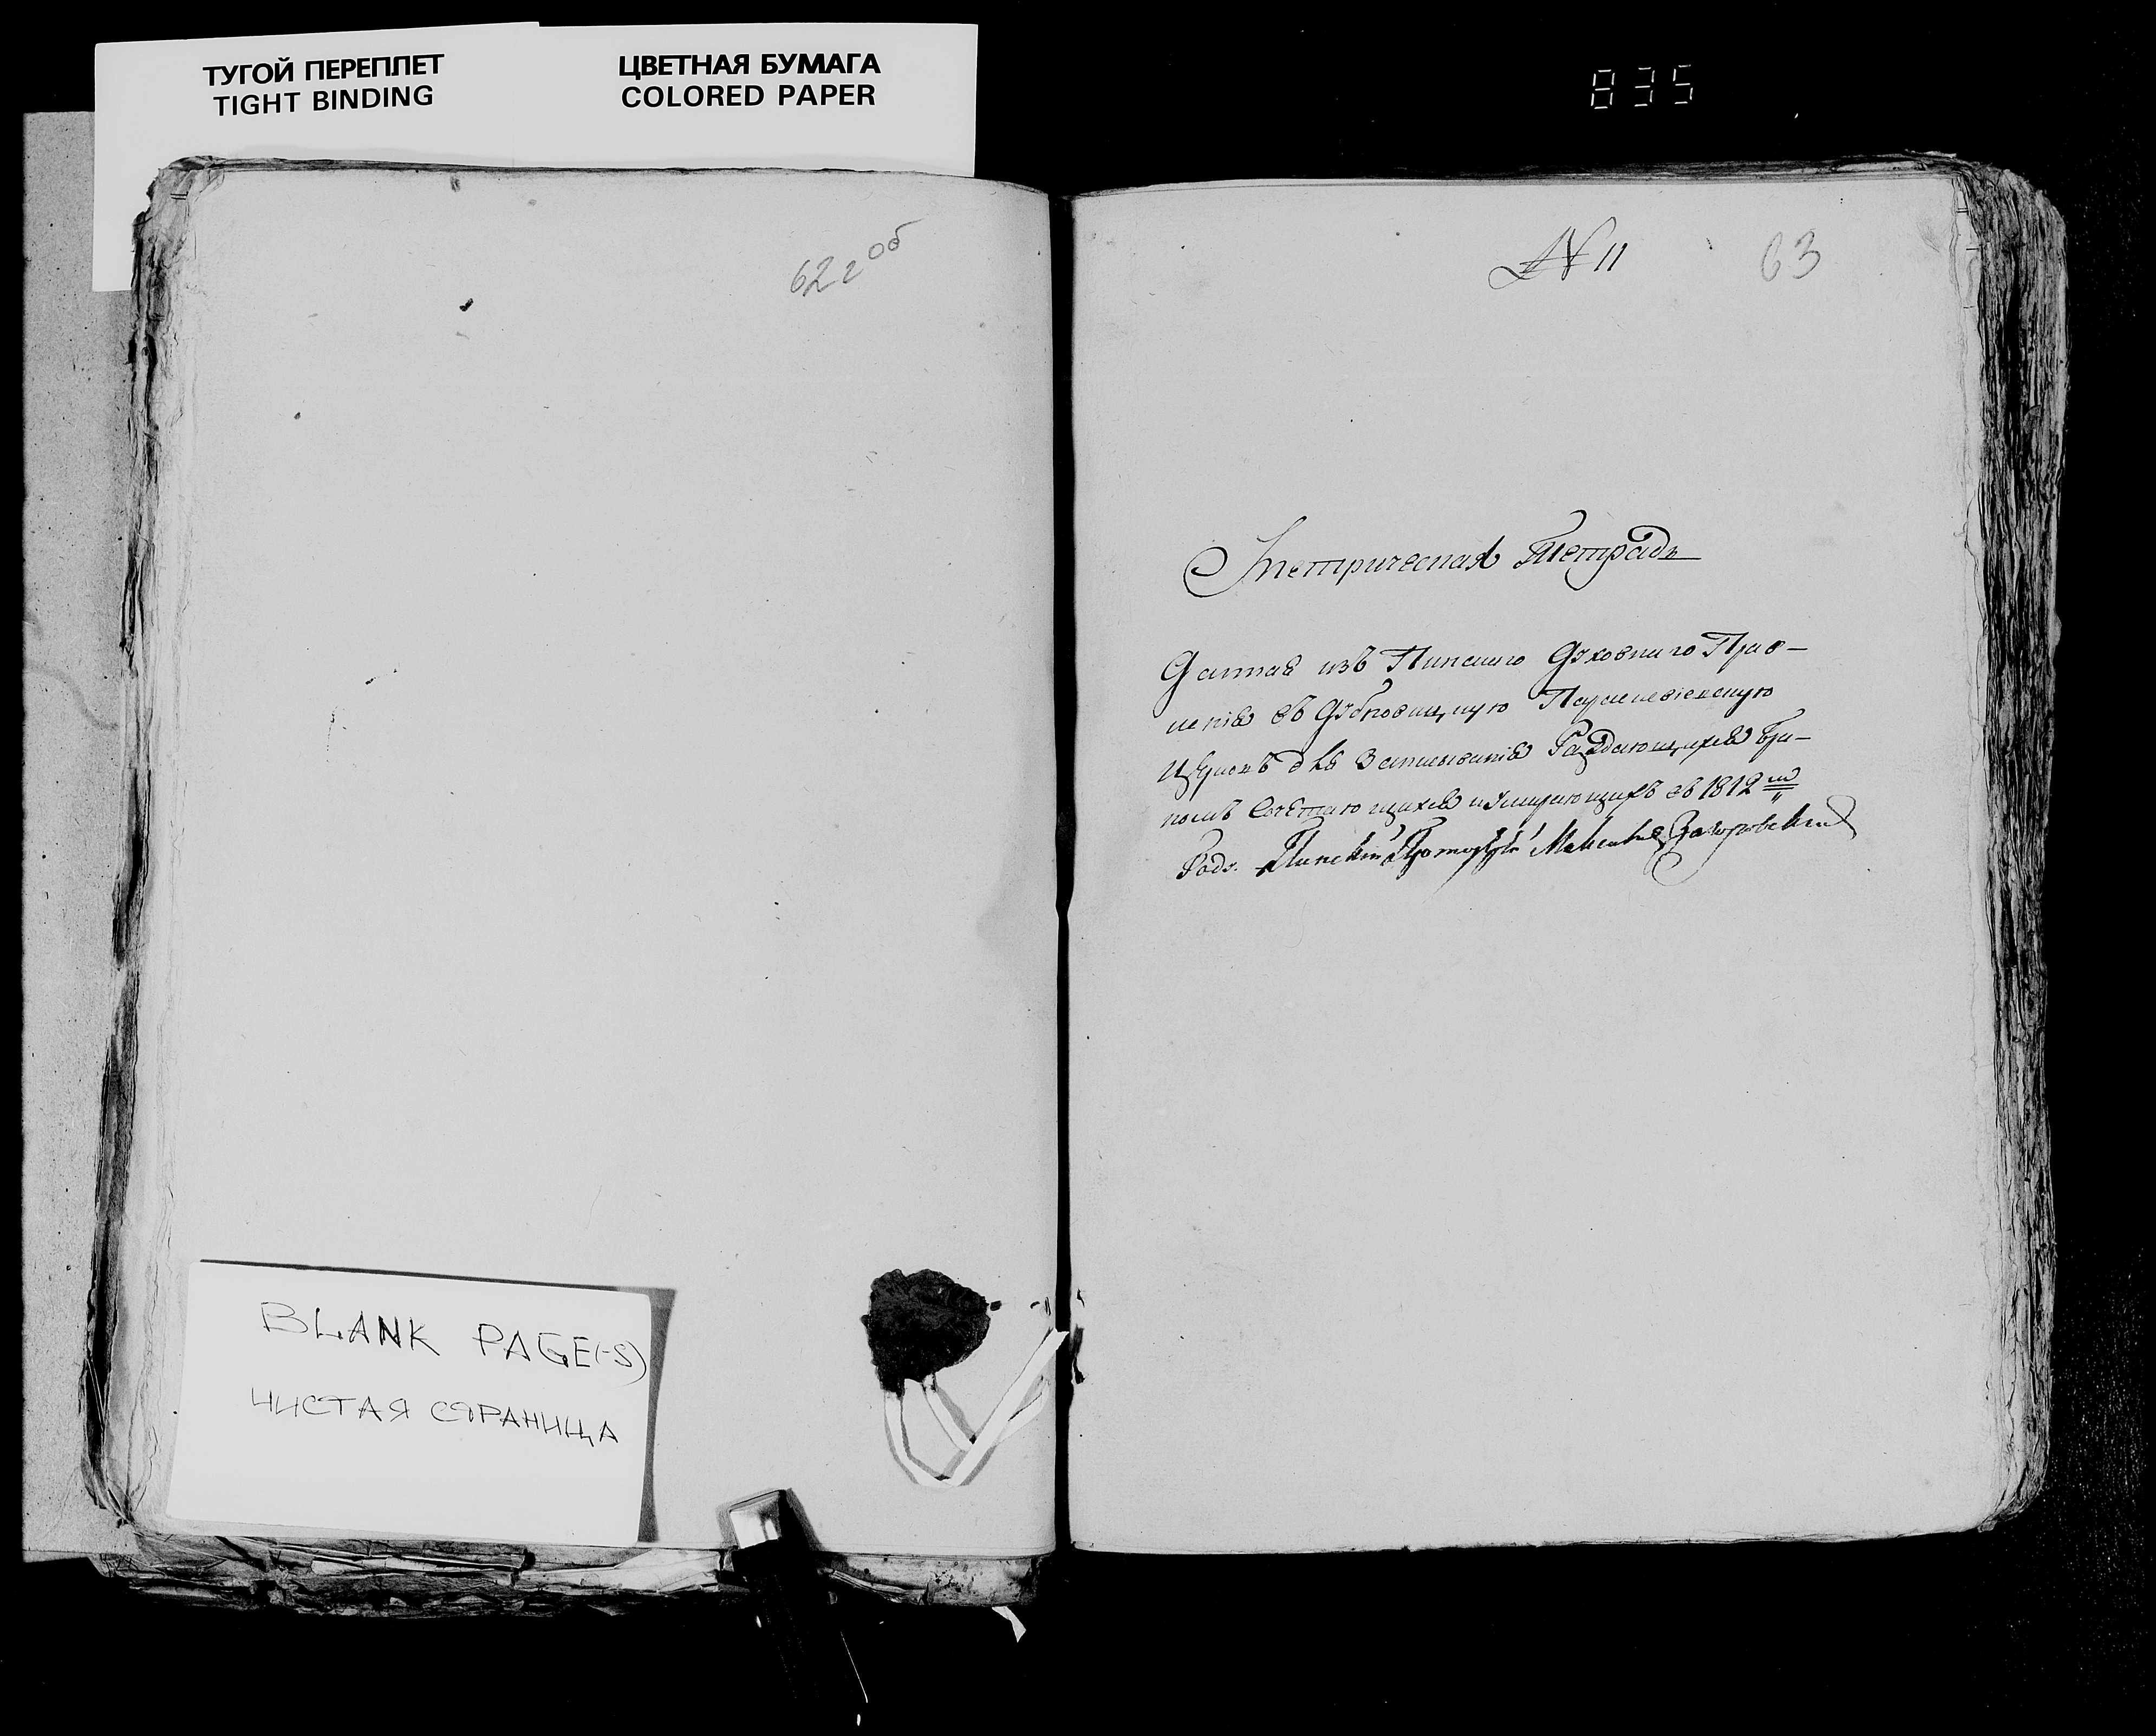 ТУГОЙ ПЕРЕПЛЕТ
TIGHT BINDING
ЦВЕТНАЯ БУМАГА
COLORED PAPER
835
62г об
№ 11
63
Метрическая Тетрадь
Данная изъ Пинскаго Духовнаго Прав-
ленія въ Дубновицкую Параскевіевскую
Церковь для Записыванія Раждающихся Бра-
комъ Сочетающихся и Умирающихъ въ 1812м
Годѣ. Пинскій Протоіерей Загоровскій
BLANK PAGE(-S)
ЧИСТАЯ СТРАНИЦА